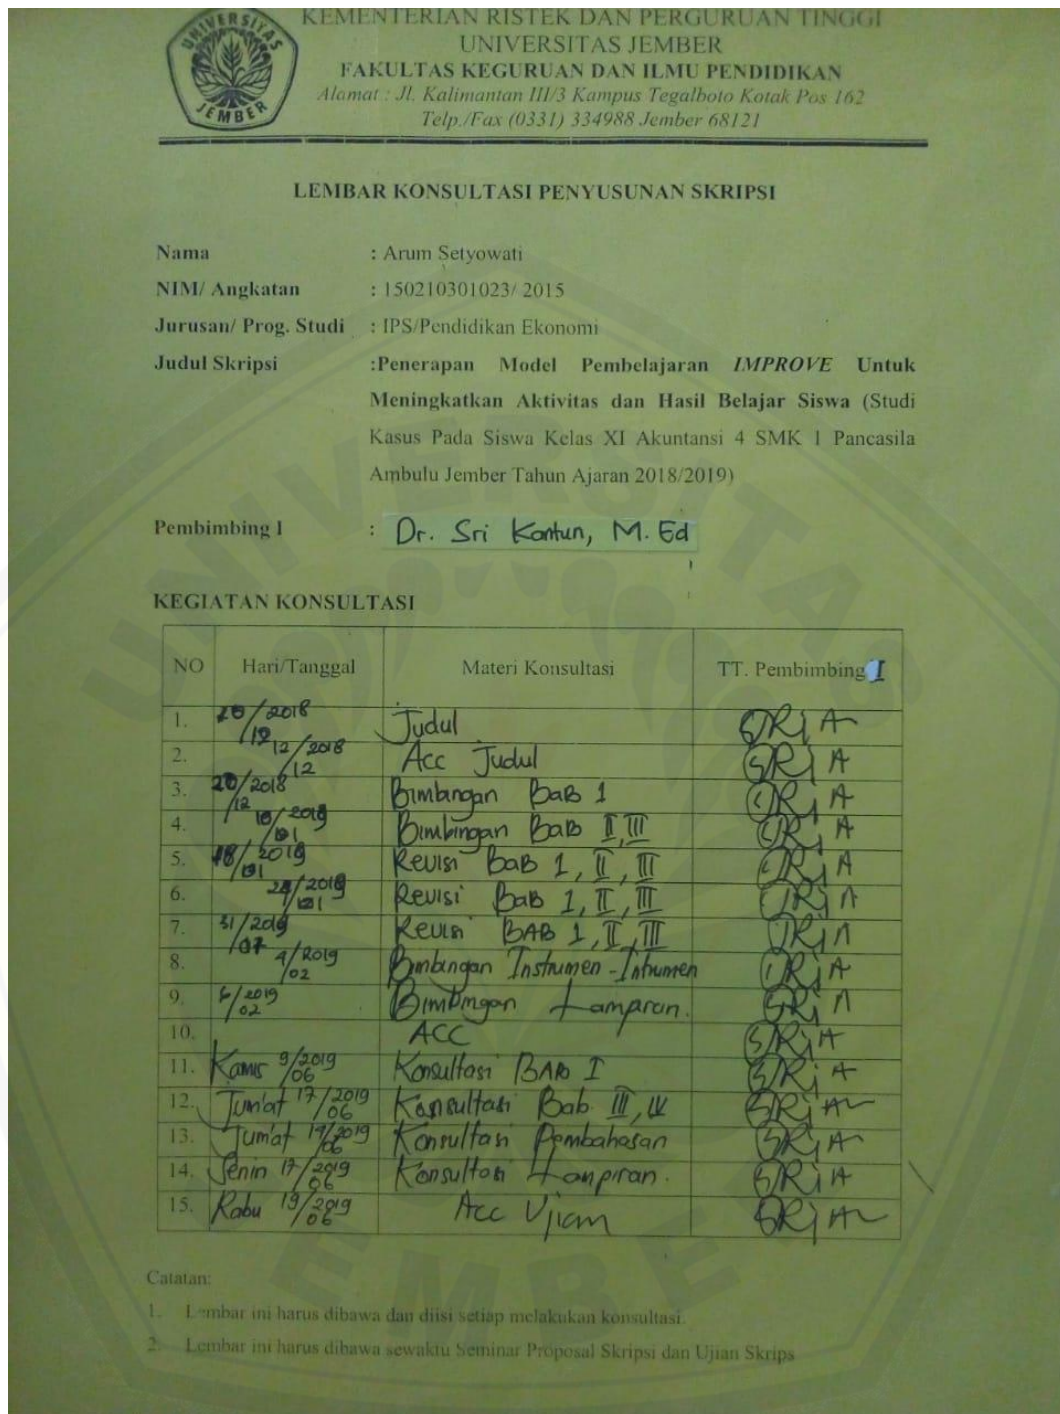 KEMENTERIAN RISTEK DAN PERGURUAN TINGGI
UNIVERSITAS JEMBER
FAKULTAS KEGURUAN DAN ILMU PENDIDIKAN
Alamat : Jl. Kalimantan III/3 Kampus Tegalboto Kotak Pos 162
Telp./Fax (0331) 334988 Jember 68121
UNIVERSITAS JEMBER
LEMBAR KONSULTASI PENYUSUNAN SKRIPSI
Nama : Arum Setyowati
NIM/ Angkatan : 150210301023/ 2015
Jurusan/ Prog. Studi : IPS/Pendidikan Ekonomi
Judul Skripsi :Penerapan Model Pembelajaran IMPROVE Untuk
Meningkatkan Aktivitas dan Hasil Belajar Siswa (Studi
Kasus Pada Siswa Kelas XI Akuntansi 4 SMK 1 Pancasila
Ambulu Jember Tahun Ajaran 2018/2019)
Pembimbing I : Dr. Sri Kantun, M. Ed
KEGIATAN KONSULTASI
NO Hari/Tanggal Materi Konsultasi TT. Pembimbing I
1. /2018 Judul
2. 12/2018 12 Acc Judul
3. 20/2018 12 Bimbingan BaB 1
4. Bimbingan BaB II, III
5. Revisi BaB 1, II, III
6. Revisi Bab 1, II, III
7. 31/2019 Revisi BAB 1, II, III
8. 4/2019 02 Bimbingan Instrumen - Intrumen
9. /2019 02 Bimbingan Lampiran.
10. ACC
11. Kamis 9/2019 06 Konsultasi BAB I
12. Jum'at 17/2019 06 Konsultasi Bab III, IV
13. Jum'at /2019 06 Konsultasi Pembahasan
14. Senin 17/2019 06 Konsultasi Lampiran.
15. Rabu 19/2019 06 Acc Ujian
Catatan:
1. Lembar ini harus dibawa dan diisi setiap melakukan konsultasi.
2. Lembar ini harus dibawa sewaktu Seminar Proposal Skripsi dan Ujian Skrips